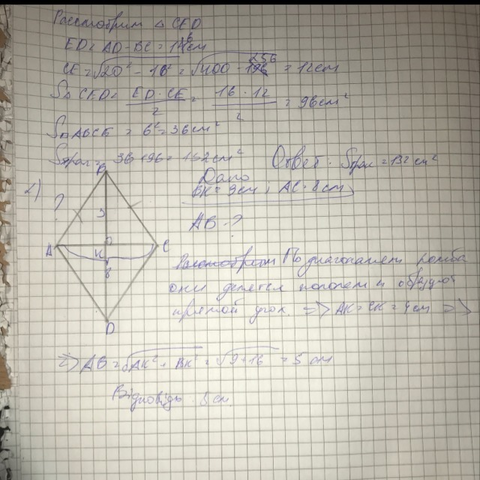 Рассмотрим △ CED
ED = AD - BC = 16 см
CE = √20² - 16² = √400 - 256 = 12 см
S△CED = ED · CE / 2 = 16 · 12 / 2 = 96 см²
S□ABCE = 6² = 36 см²
36 + 96 = 132 см² Ответ: Sтрап = 132 см²
2) Дано
BK = 3 см, AC = 8 см
AB - ?
B
?
3
A
K
C
8
D
Рассмотрим По диагоналям ромба
они делятся пополам и образуют
прямой угол. => AK = CK = 4 см =>
=> AB = √AK² + BK² = √9 + 16 = 5 см
Відповідь 5 см